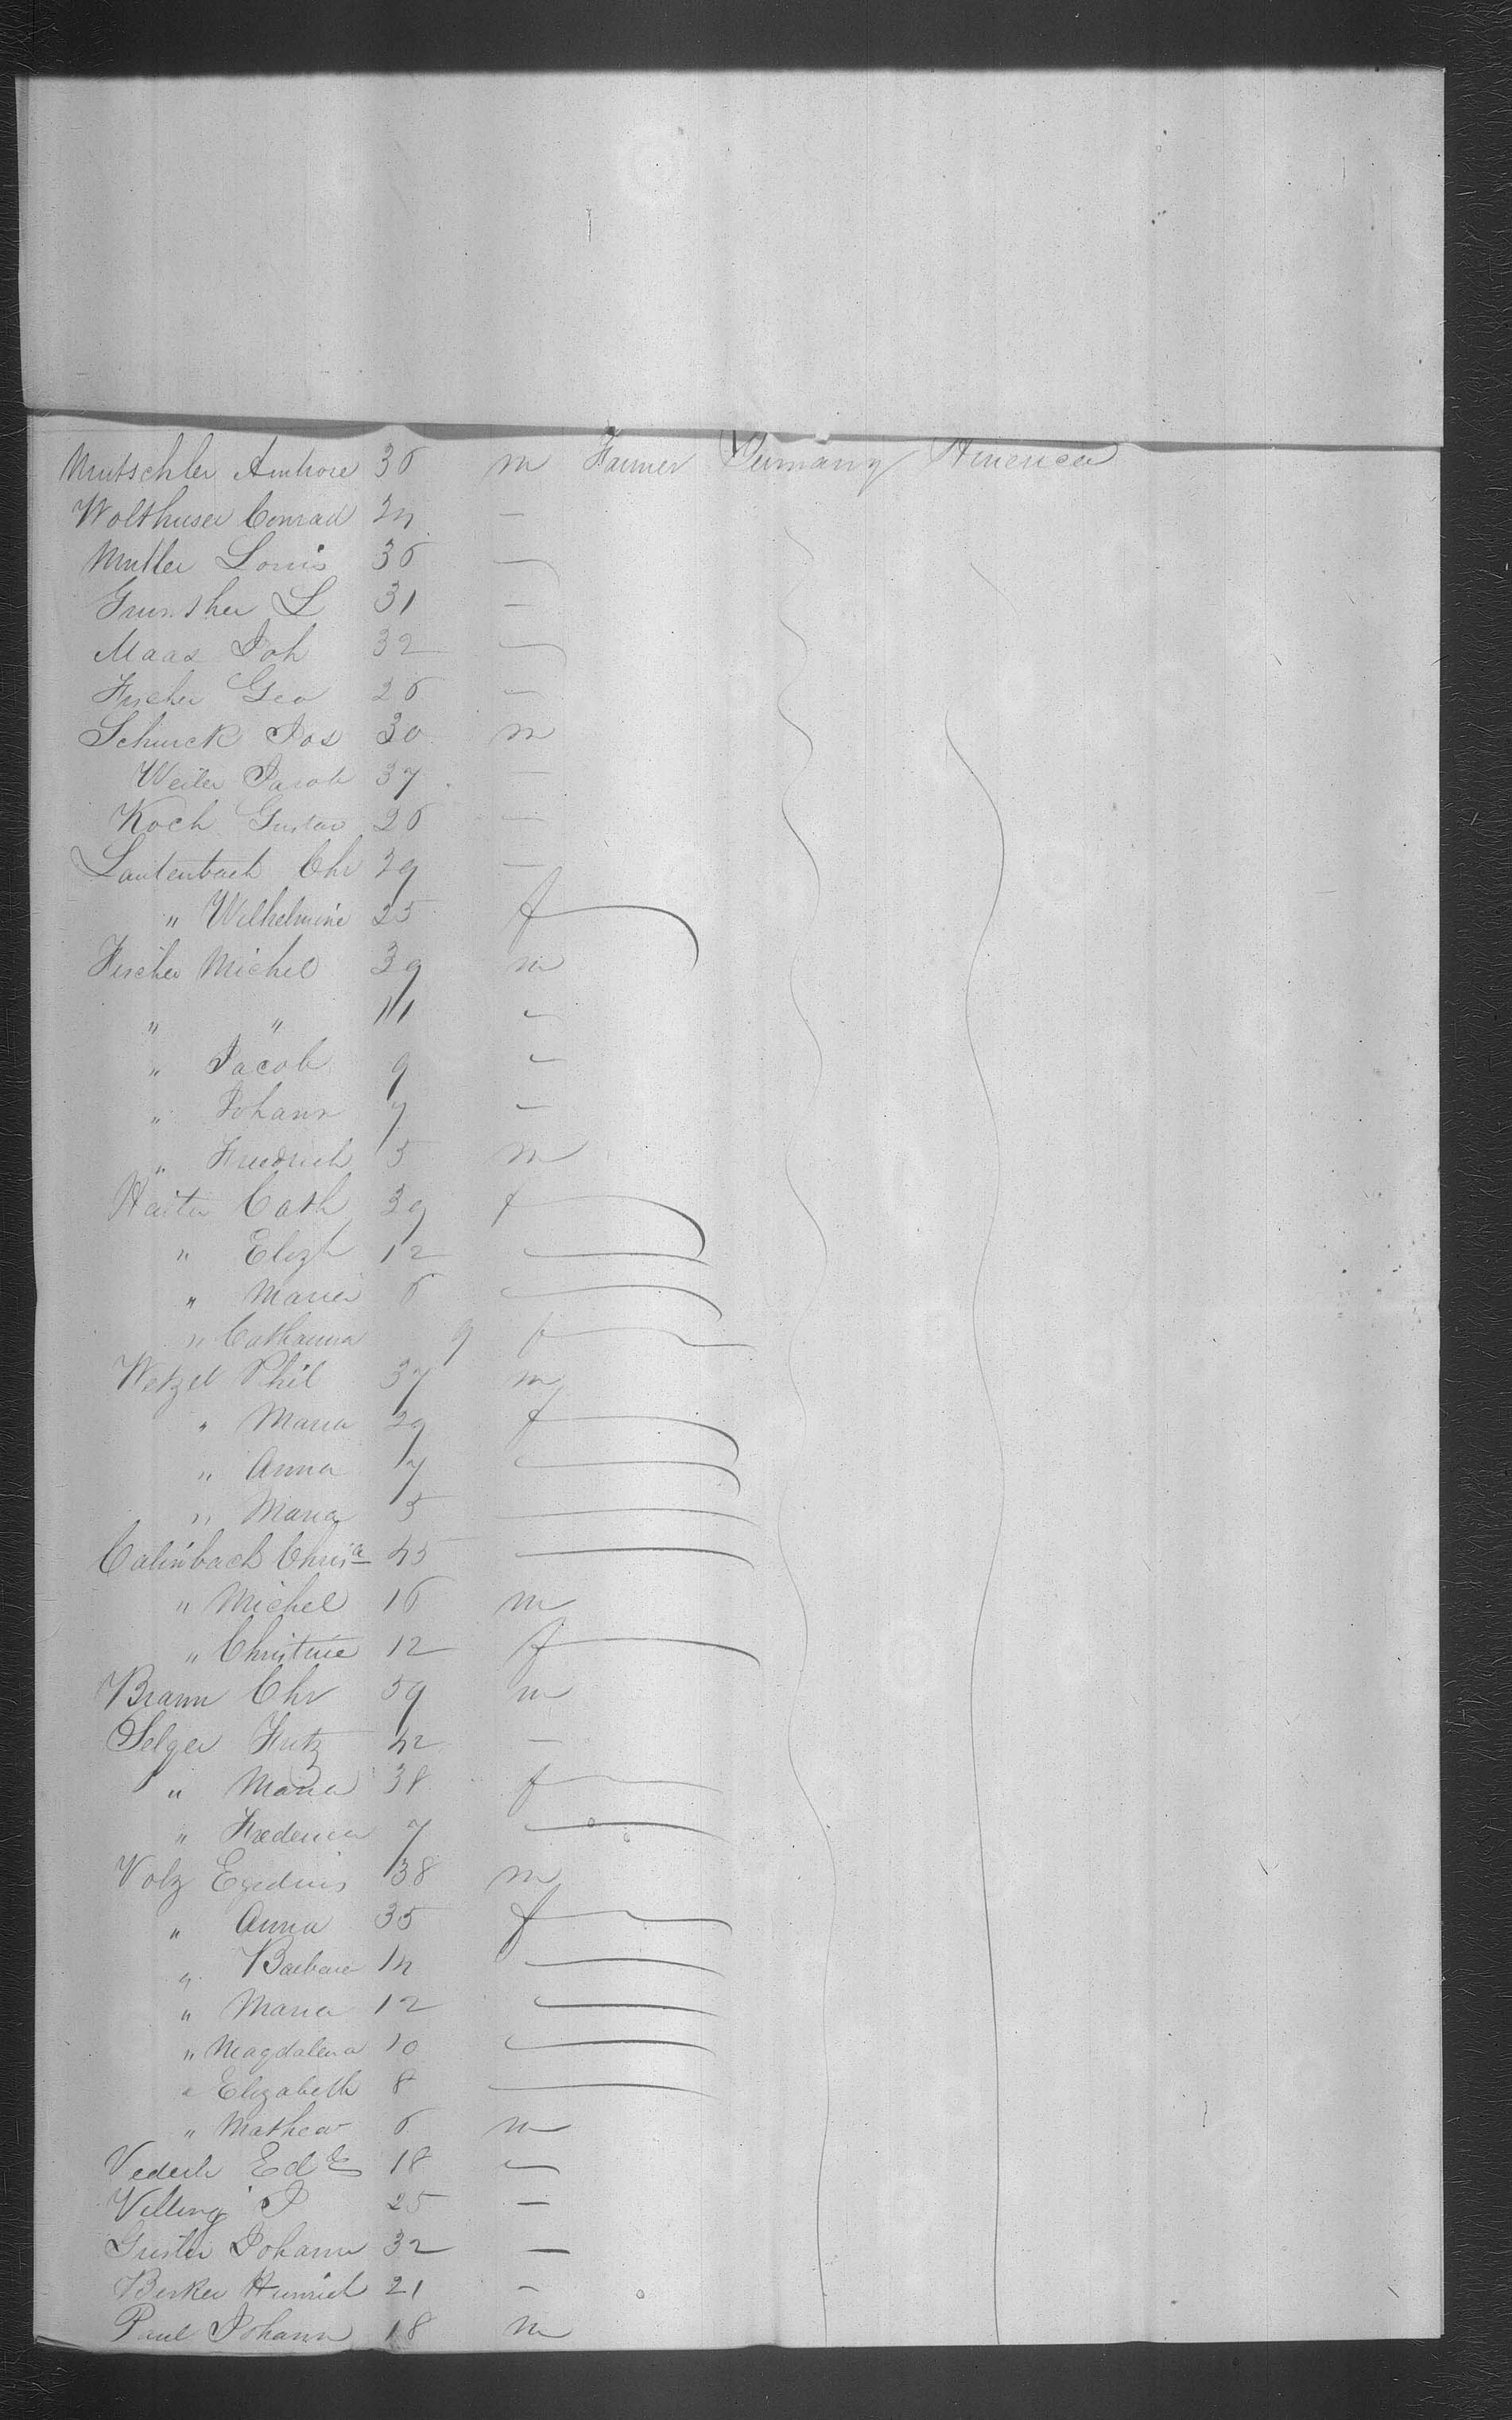 Mutschler Ambrose 36 m Farmer Germany America
Wolthuser Conrad 24 —
Muller Louis 36 —
Grunsher L 31 —
Maas Joh 32 —
Fischer Geo 26 —
Schurck Jos 30 m
Weiler Jacob 37 —
Koch Gustav 26 —
Lautenbach Chr 29 —
" Wilhelmine 25 f
Fischer Michel 39 m
" " 11 —
" Jacob 9 —
" Johann 7 —
" Friedrich 5 m
Cath 39 f
" Elizh 12 —
" Maria 6 —
" Catharina 9 f
Wetzel Phil 37 m
" Maria 29 f
" Anna 7 —
" Maria 5 —
Calmbach Chrisa 45 —
" Michel 16 m
" Christine 12 f
Braun Chr 39 m
Selger Fritz 42 —
" Maria 38 f
" Frederica 7 —
Volz Egedius 38 m
" Anna 35 f
" Barbara 14 —
" Maria 12 —
" Magdalena 10 —
" Elizabeth 8 —
" Mathew 6 m
Ed 18 —
Villing J 25 —
Johann 32 —
Berker Heinrich 21 —
Paul Johann 18 m